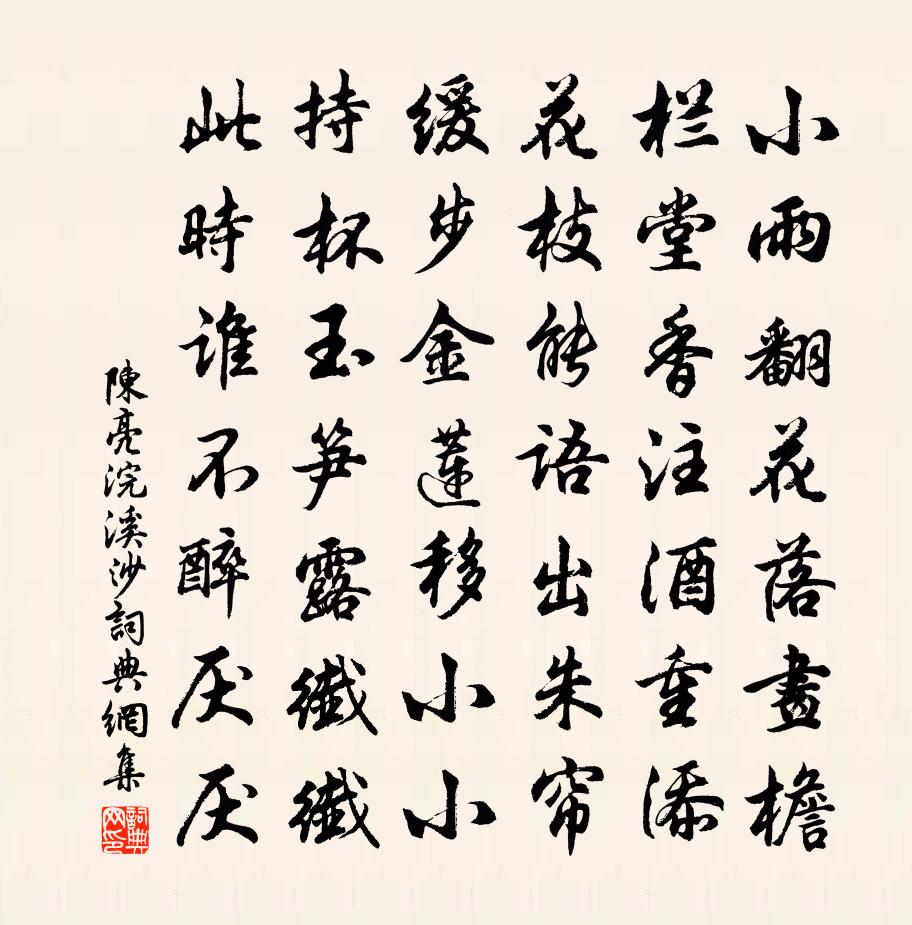 小雨翻花落畫檐
栏堂香注酒重添
花枝能语出朱帘
缓步金蓮移小小
持杯玉笋露纖纖
此時谁不醉厌厌
陳亮浣溪沙詞典網集
詞典网印